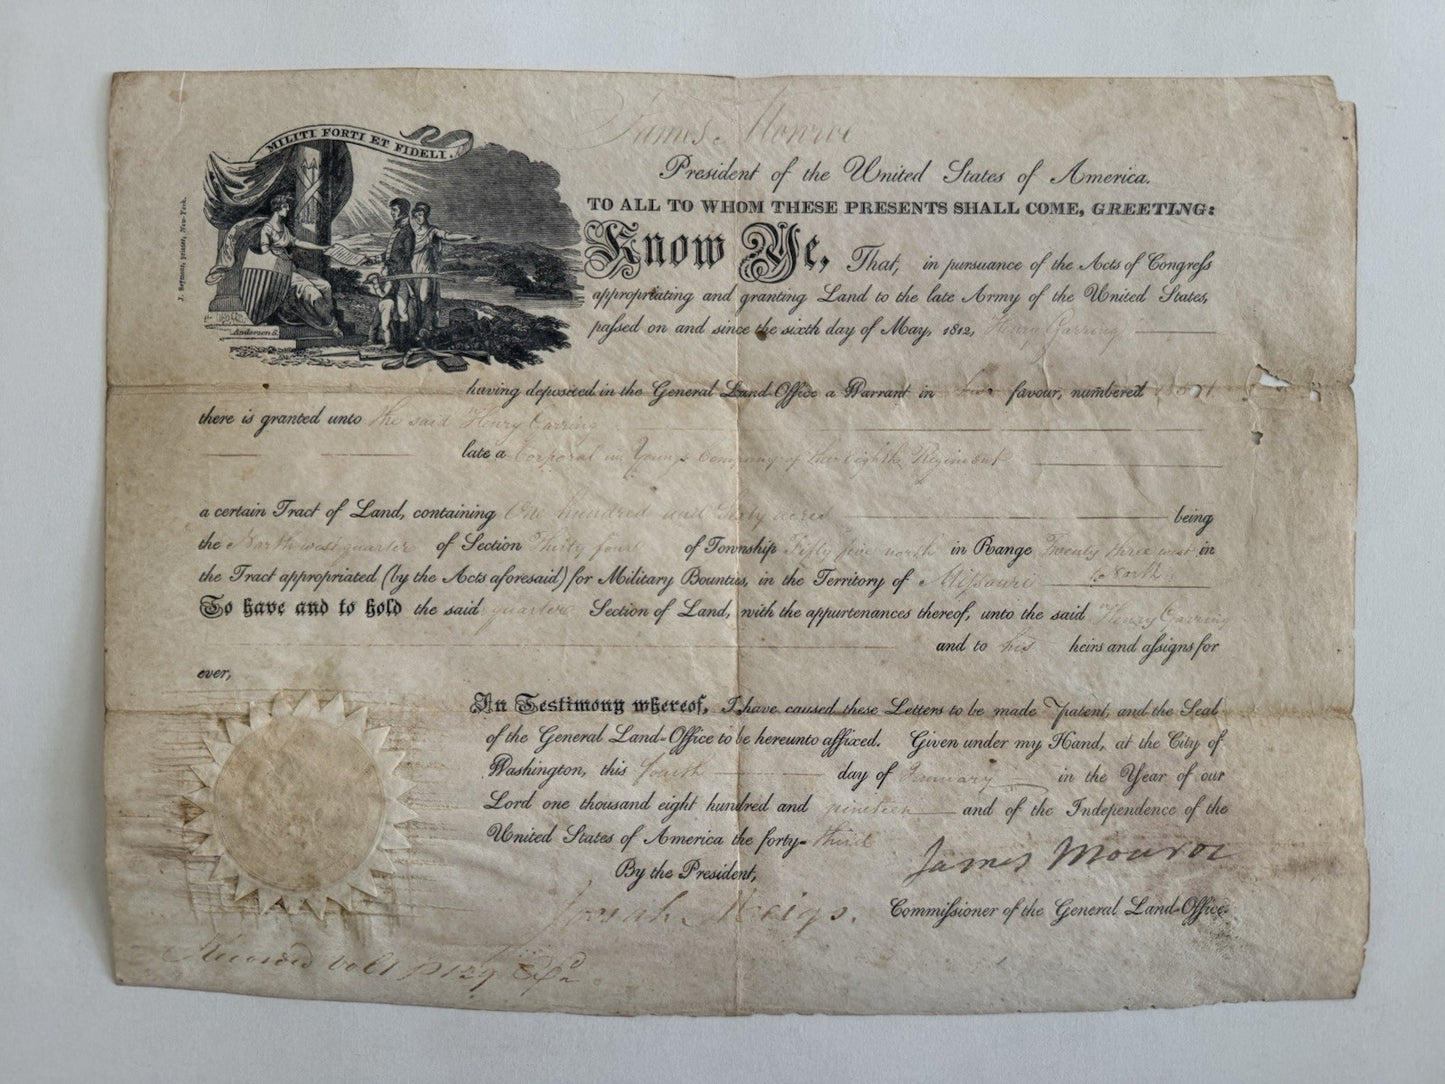 James Monroe
MILITI FORTI ET FIDELI.
President of the United States of America.
TO ALL TO WHOM THESE PRESENTS SHALL COME, GREETING:
Know Ye, That, in pursuance of the Acts of Congress
appropriating and granting Land to the late Army of the United States,
passed on and since the sixth day of May, 1812, Henry Garring
J. Seymour, printer, New-York.
Anderson S.
having deposited in the General Land-Office a Warrant in his favour, numbered
there is granted unto the said Henry Garring
late a Corporal in Young's Company of the Eighth Regiment
a certain Tract of Land, containing One hundred and Sixty acres being
the North west quarter of Section Thirty four of Township Fifty five north in Range Twenty three west in
the Tract appropriated (by the Acts aforesaid) for Military Bounties, in the Territory of Missouri
To have and to hold the said quarter Section of Land, with the appurtenances thereof, unto the said Henry Garring
and to his heirs and assigns for
ever,
In Testimony whereof, I have caused these Letters to be made Patent, and the Seal
of the General Land-Office to be hereunto affixed. Given under my Hand, at the City of
Washington, this fourth day of January in the Year of our
Lord one thousand eight hundred and nineteen and of the Independence of the
United States of America the forty-third
By the President, James Monroe
Josiah Meigs. Commissioner of the General Land-Office.
Recorded vol